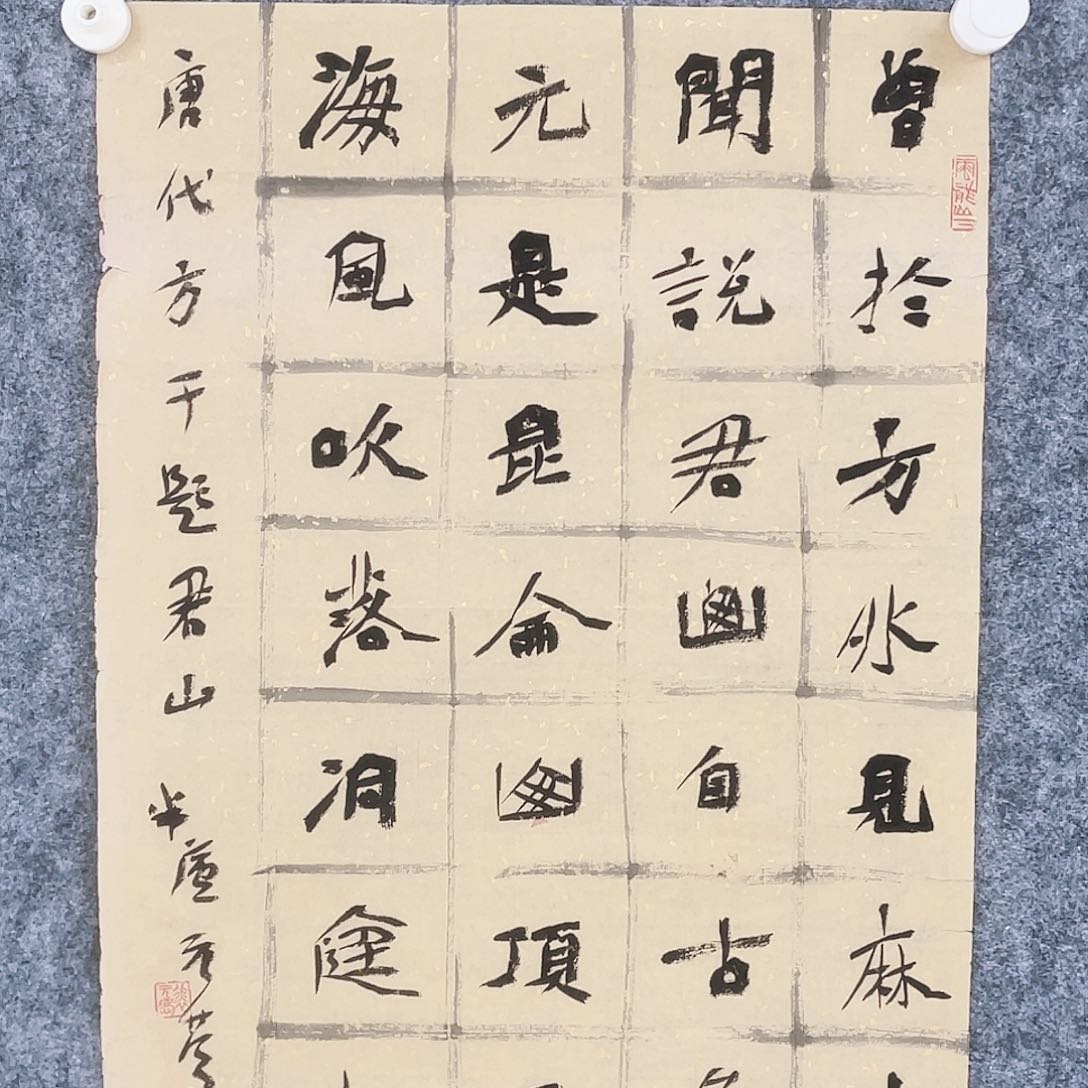 曾於方外見麻
聞說君山自古
元是昆侖山頂
海風吹落洞庭
唐代方干題君山 半廬